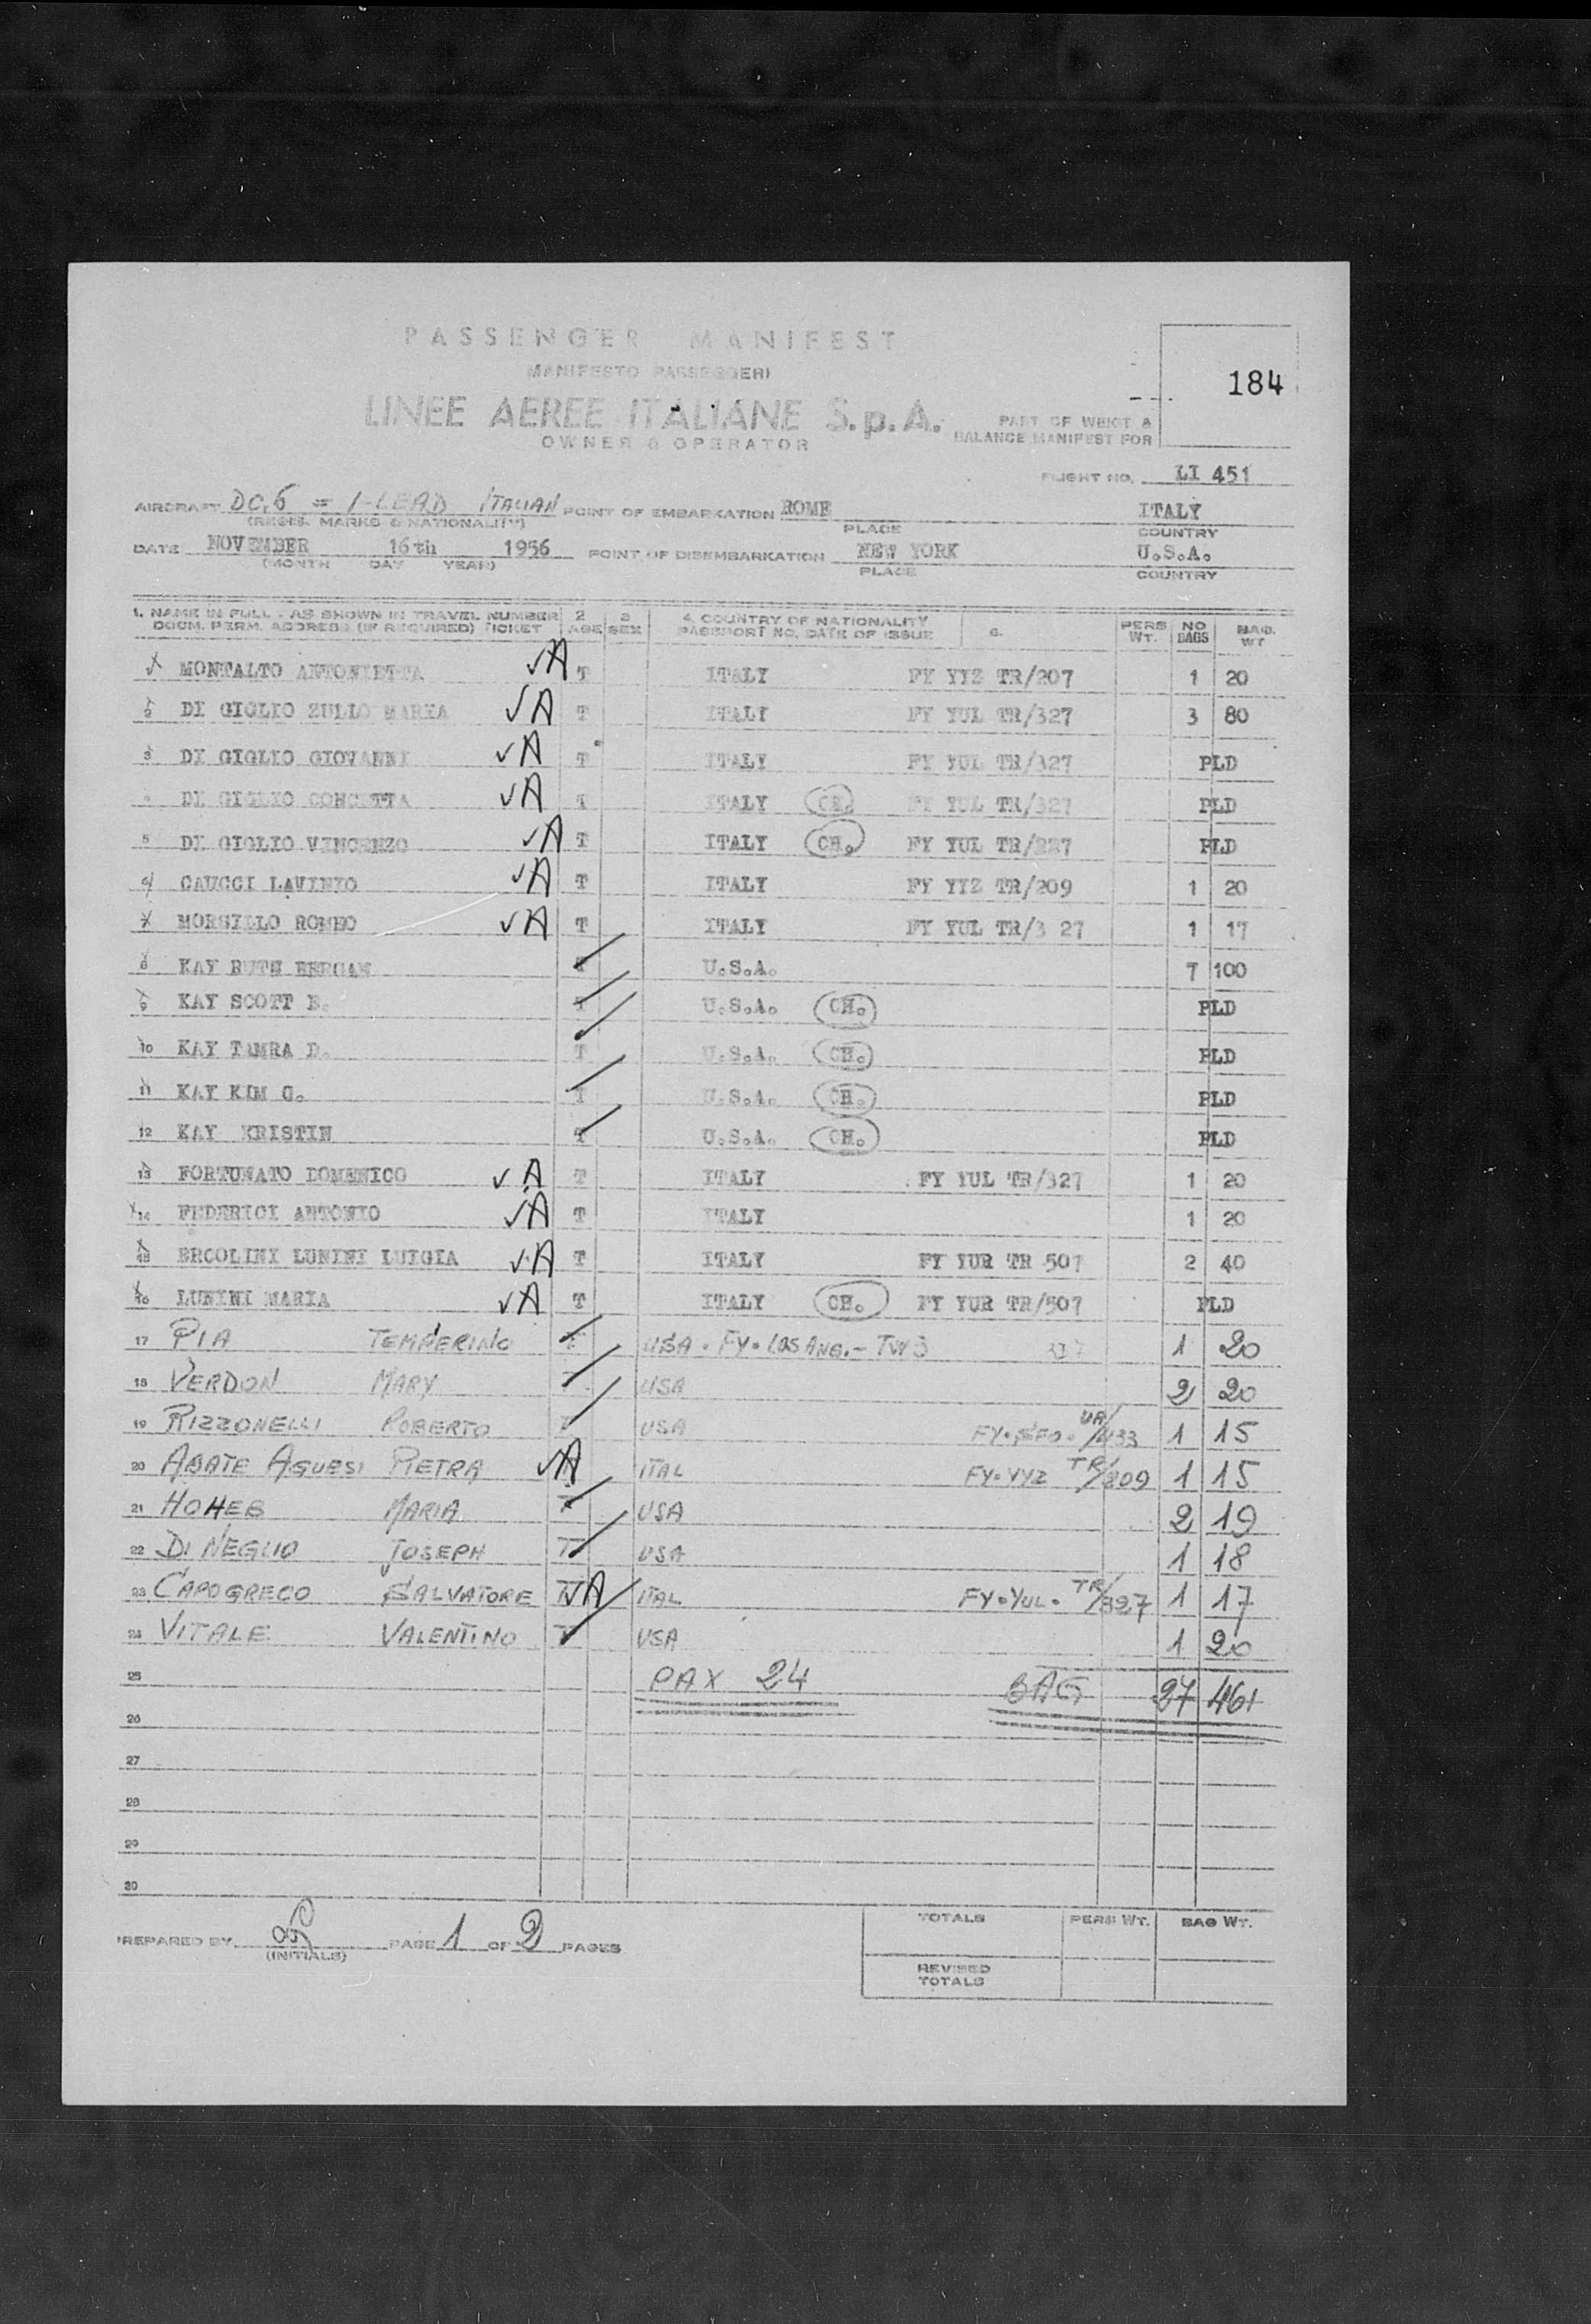 PASSENGER MANIFEST
MANIFESTO PASSEGGERI
LINEE AEREE ITALIANE S.p.A.
OWNER & OPERATOR
184
PART OF WEIGT &
BALANCE MANIFEST FOR
FLIGHT NO. LI 451
AIRCRAFT DC.6 = I-LEAD ITALIAN POINT OF EMBARKATION ROME ITALY
(REGIS. MARKS & NATIONALITY) PLACE COUNTRY
DATE NOVEMBER 16th 1956 POINT OF DISEMBARKATION NEW YORK U.S.A.
(MONTH DAY YEAR) PLACE COUNTRY
1. NAME IN FULL. AS SHOWN IN TRAVEL NUMBER 2 3 4. COUNTRY OF NATIONALITY 6. PERS NO BAG.
DOCM. PERM. ADDRESS (IF REQUIRED) TICKET AGE SEX PASSPORT NO. DATE OF ISSUE WT. BAGS WT
MONTALTO ANTONIETTA √A T ITALY FY YYZ TR/207 1 20
2 DI GIGLIO ZULLO MARIA √A T ITALY FY YUL TR/327 3 80
3 DI GIGLIO GIOVANNI √A T ITALY FY YUL TR/327 PLD
4 DI GIGLIO CONCETTA √A T ITALY CH. FY YUL TR/327 PLD
5 DI GIGLIO VINCENZO √A T ITALY CH. FY YUL TR/327 PLD
CAUCCI LAVINIO √A T ITALY FY YYZ TR/209 1 20
MORSILLO ROMEO √A T ITALY FY YUL TR/3 27 1 17
8 KAY RUTH BERGAN T U.S.A. 7 100
9 KAY SCOTT B. T U.S.A. CH. PLD
10 KAY TAMRA D. T U.S.A. CH. PLD
11 KAY KIM G. T U.S.A. CH. PLD
12 KAY KRISTIN T U.S.A. CH. PLD
13 FORTUNATO DOMENICO √A T ITALY FY YUL TR/327 1 20
14 FEDERICI ANTONIO √A T ITALY 1 20
15 ERCOLINI LUNINI LUIGIA √A T ITALY FY YUR TR 507 2 40
16 LUNINI MARIA √A T ITALY CH. FY YUR TR/507 PLD
17 PIA TEMPERINO T USA . FY . LOS ANG. - TW 337 1 20
18 VERDON MARY T USA 2 20
19 RIZZONELLI ROBERTO T USA FY . SFO . UA/433 1 15
20 ABATE AGUESI PIETRA √A ITAL FY . YYZ TR/209 1 15
21 HOHEB MARIA T USA 2 19
22 DI NEGLIO JOSEPH T USA 1 18
23 CAPOGRECO SALVATORE T √A ITAL FY . YUL . TR/327 1 17
24 VITALE VALENTINO T USA 1 20
25 PAX 24 BAG 27 461
26
27
28
29
30
PREPARED BY PAGE 1 OF 2 PAGES
(INITIALS)
TOTALS PERS WT. BAG WT.
REVISED
TOTALS